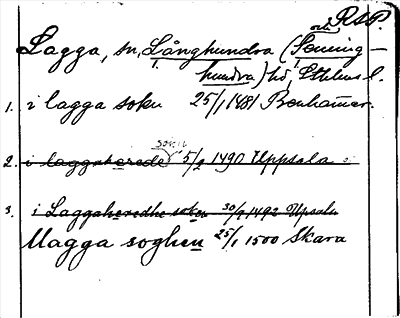 R.S.P.
Lagga, sn, Långhundra (och Seming-
hundra) hd, Sthlms l.
1. i lagga sokn 25/1 1481 Benhamar.
sokn
2. i laggaherede 5/2 1490 Uppsala
3. i Laggaheredhe sokn 30/9 1492 Upsala
Magga soghen 25/1 1500 Skara